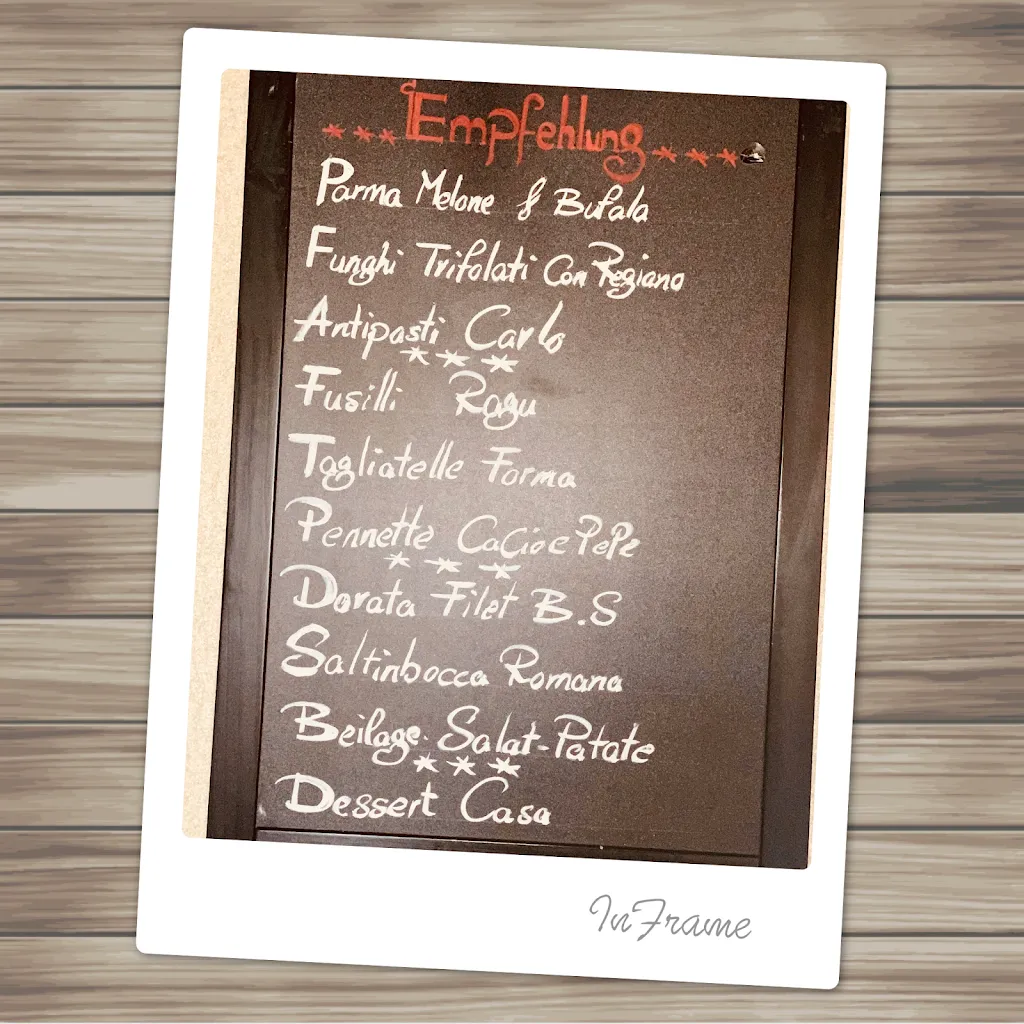 ***Empfehlung***
Parma Melone & Bufala
Funghi Trifolati Con Regiano
Antipasti Carlo
***
Fusilli Ragu
Tagliatelle Forma
Pennette CaCio e PePe
***
Dorata Filet B.S
Saltinbocca Romana
Beilage. Salat-Patate
***
Dessert Casa
InFrame